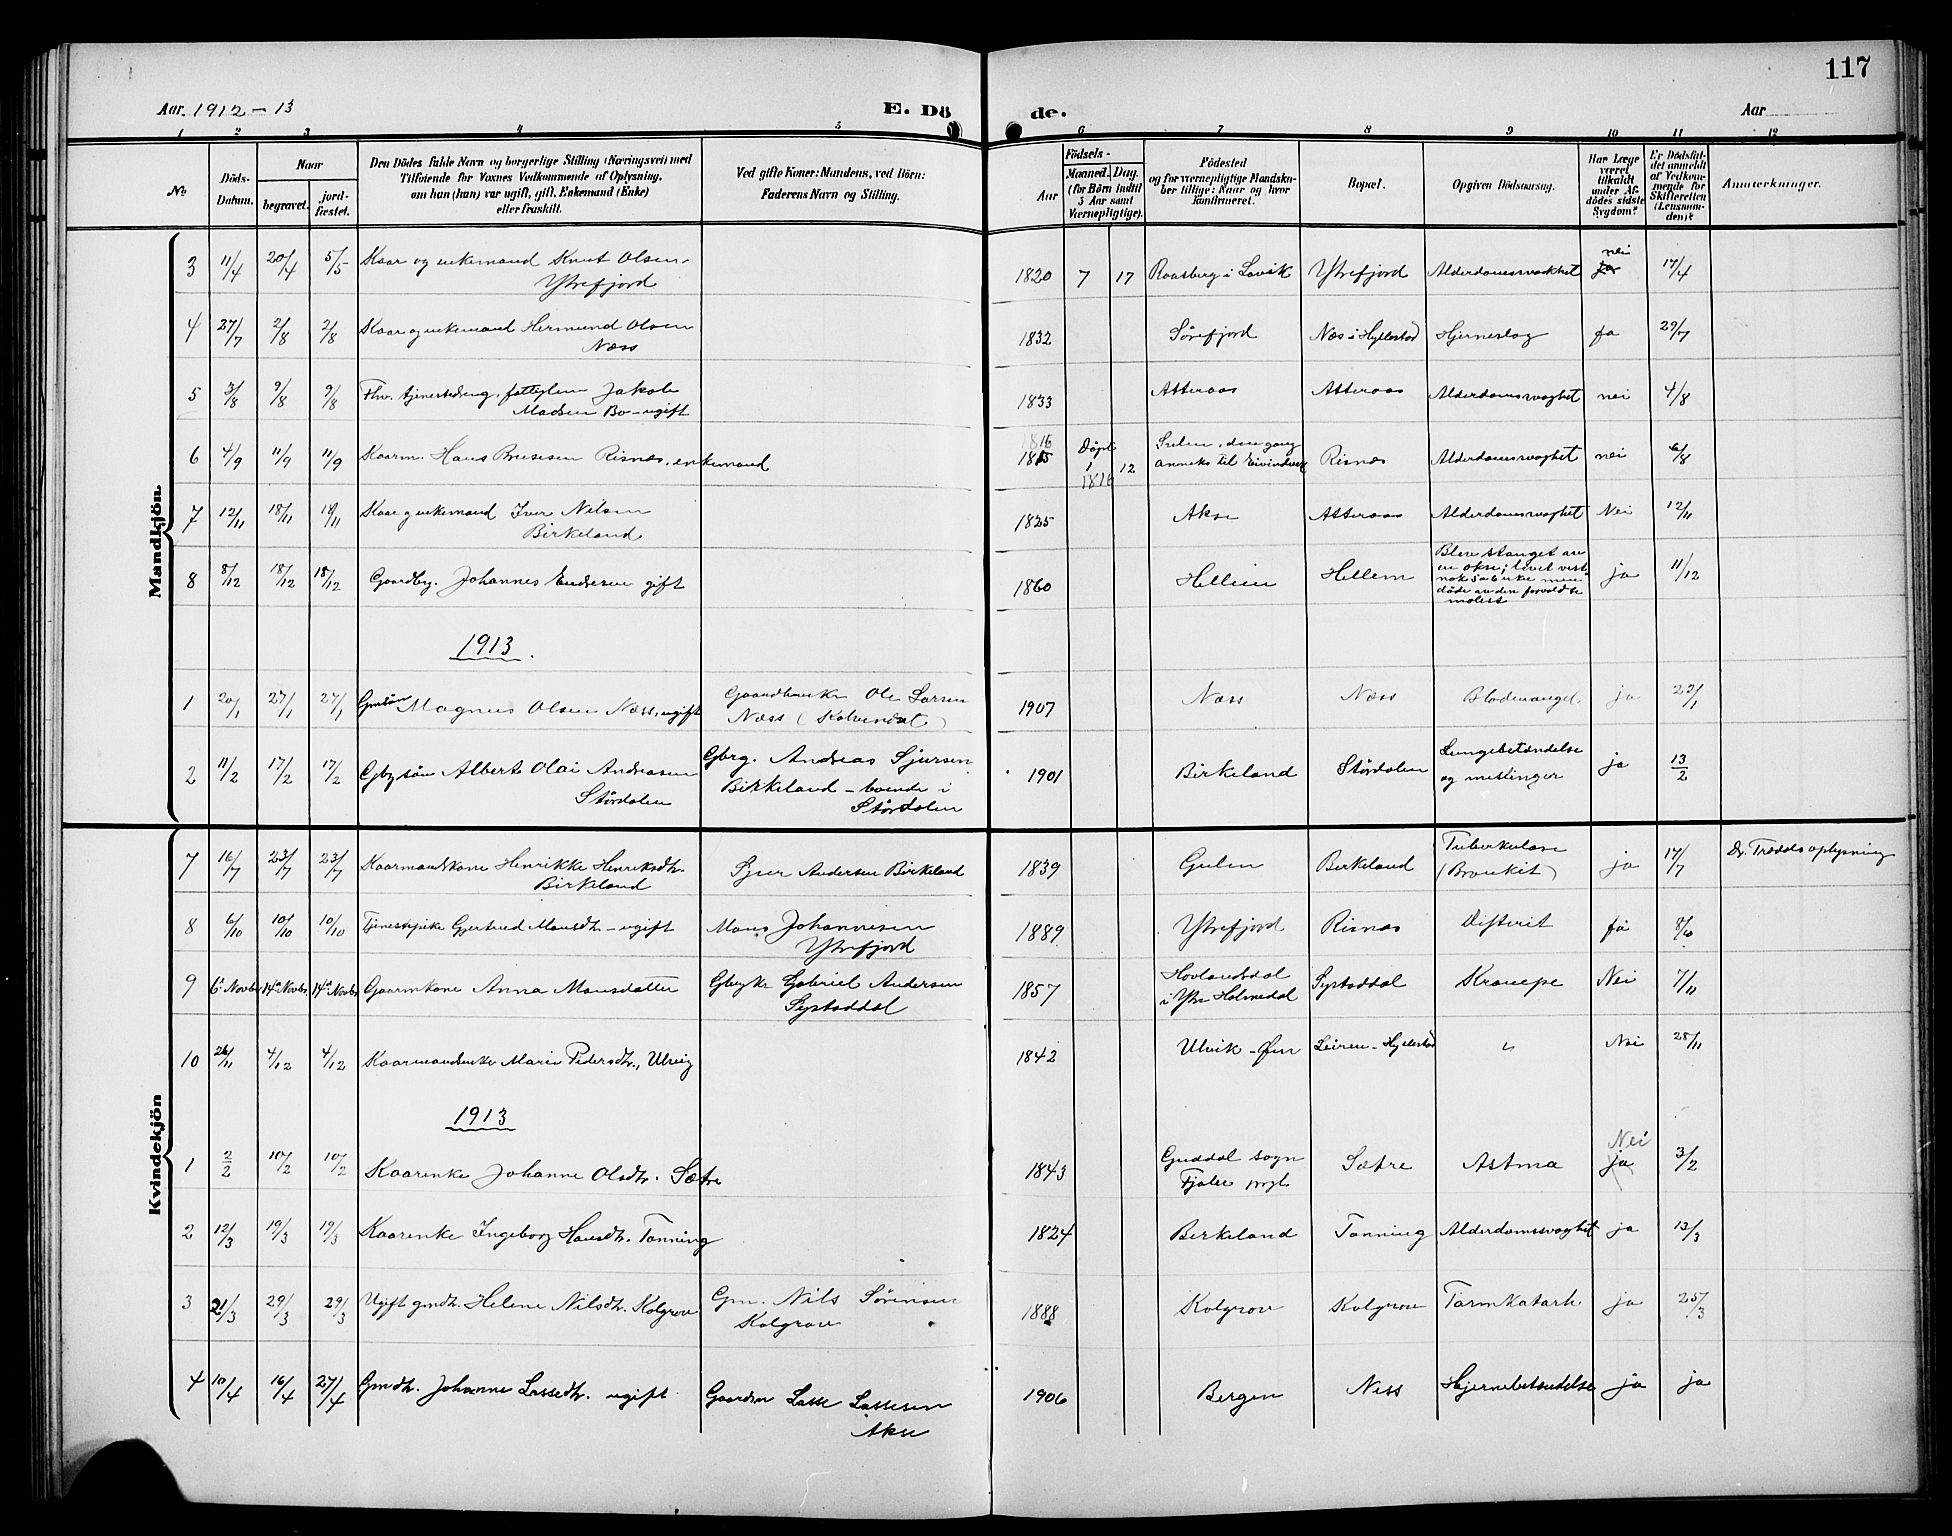 117
Aar. 1912 - 13
E. Dö
de.
Aar
1 2 3 4 5 6 7 8 9 10 11 12
No.
Döds-
Datum.
Naar
begravet.
jord-
fæstet.
Den Dödes fulde Navn og borgerlige Stilling (Næringsvei) med
Tilföiende for Voxnes Vedkommende af Oplysning,
om han (hun) var ugift, gift, Enkemand (Enke)
eller fraskilt.
Ved gifte Koner: Mandens, ved Börn:
Faderens Navn og Stilling.
Födsels-
Aar
Maaned. Dag.
(for Börn indtil
5 Aar samt
Værnepligtige).
Födested
og for værnepligtige Mandskaber tillige: Naar og hvor
konfirmeret.
Bopæl.
Opgiven Dödsaarsag.
Har Læge
været
tilkaldt
under Af-
dödes sidste
Sygdom?
Er Dödsfal-
det anmeldt
af Vedkom-
mende for
Skifteretten
(Lensman-
den)?
Anmærkninger.
Mandkjön.
3 11/4 20/4 5/5 Kaar og enkemand Knut Olsen
Ytrefjord
1820 7 17 Raasberg i Lavik Ytrefjord Alderdomssvakhet ja nei 17/4
4 27/7 2/8 2/8 Kaar og enkemand Hermund Olsen
Næss
1832 Sørefjord Næs i Hyllestad Hjerneslag ja 29/7
5 3/8 9/8 9/8 Fhv. tjenestedreng, fattiglem Jakob
Madsen Bo - ugift
1833 Atteraas Atteraas Alderdomssvaghet nei 4/8
6 4/9 11/9 11/9 Kaarm. Hans Risnæs, enkemand
1816
1815 Døpt 1 1816 12 Sulen, den gang
anneks til Eivindvik Risnæs Alderdomssvaghet nei 6/8
7 12/11 18/11 18/11 Kaar og enkemand Iver Nilsen
Birkeland
1825 Akse Atteraas Alderdomssvaghet Nei 12/11
8 8/12 18/12 18/12 Gaardbr. Johannes Endresen gift
1860 Hellem Hellem Blev stanget av
en okse; levet vist
nok 5 a 6 uke men
døde av den forvoldte
molest ja 11/12
1913.
1 20/1 27/1 27/1 Gmsøn Magnus Olsen Næss, ugift Gaardbruker Ole Larsen
Næss (Kolvendat)
1907 Næss Næss Blodmangel ja 22/1
2 11/2 17/2 17/2 Gbrsøn Albert Olai Andreasen
Størdalen Gbrg. Andreas Sjursen
Birkeland - boende i
Størdalen
1901 Birkeland Størdalen Lungebetændelse
og meslinger ja 13/2
Kvindekjön
7 16/7 23/7 23/7 Kaarmandskone Henrikke Henriksdtr.
Birkeland Sjur Andersen Birkeland
1839 Gulen Birkeland Tuberkulose
(Bronkit) ja 17/7 Dr. Trædds oplysning
8 6/10 10/10 10/10 Tjenestepike Gjertrud Monsdtr - ugift Mons Johannesen
Ytrefjord
1889 Ytrefjord Risnæs Difterit ja 8/10
9 6te Novbr. 14de Novbr. 14de Novbr. Gaarmkone Anna Monsdatter Gbrgkr Gabriel Andersen
Systaddal
1857 Hovlandsdal
i Ytre Holmedal Systaddal Kronepe Nei 7/11
10 26/11 4/12 4/12 Kaarmandsenke Marie Pedersdtr., Ulvig
1842 Ulvik - Øen Leiren - Hyllestad " Nei 28/11
1913
1 2/2 10/2 10/2 Kaarenke Johanne Olsdtr. Sætre
1843 Guddal sogn
Fjaler prgl. Sætre Astma Nei ja 3/2
2 12/3 19/3 19/3 Kaarenke Ingeborg Hansdtr. Tonning
1824 Birkeland Tonning Alderdomssvaghet ja 13/3
3 21/3 29/3 29/3 Ugift gmdtr. Helene Nilsdtr. Kolgrov Gm. Nils Sørensen
Kolgrov
1888 Kolgrov Kolgrov Tarmkatarh ja 25/3
4 10/4 16/4 27/4 Gmdtr. Johanne Lassedtr. ugift Gaardm Lasse Lassesen
Akse
1906 Bergen Ness Hjernebetændelse ja ja